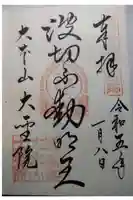 奉拝
令和五年
一月八日
波切不動明王
大本山
大聖院